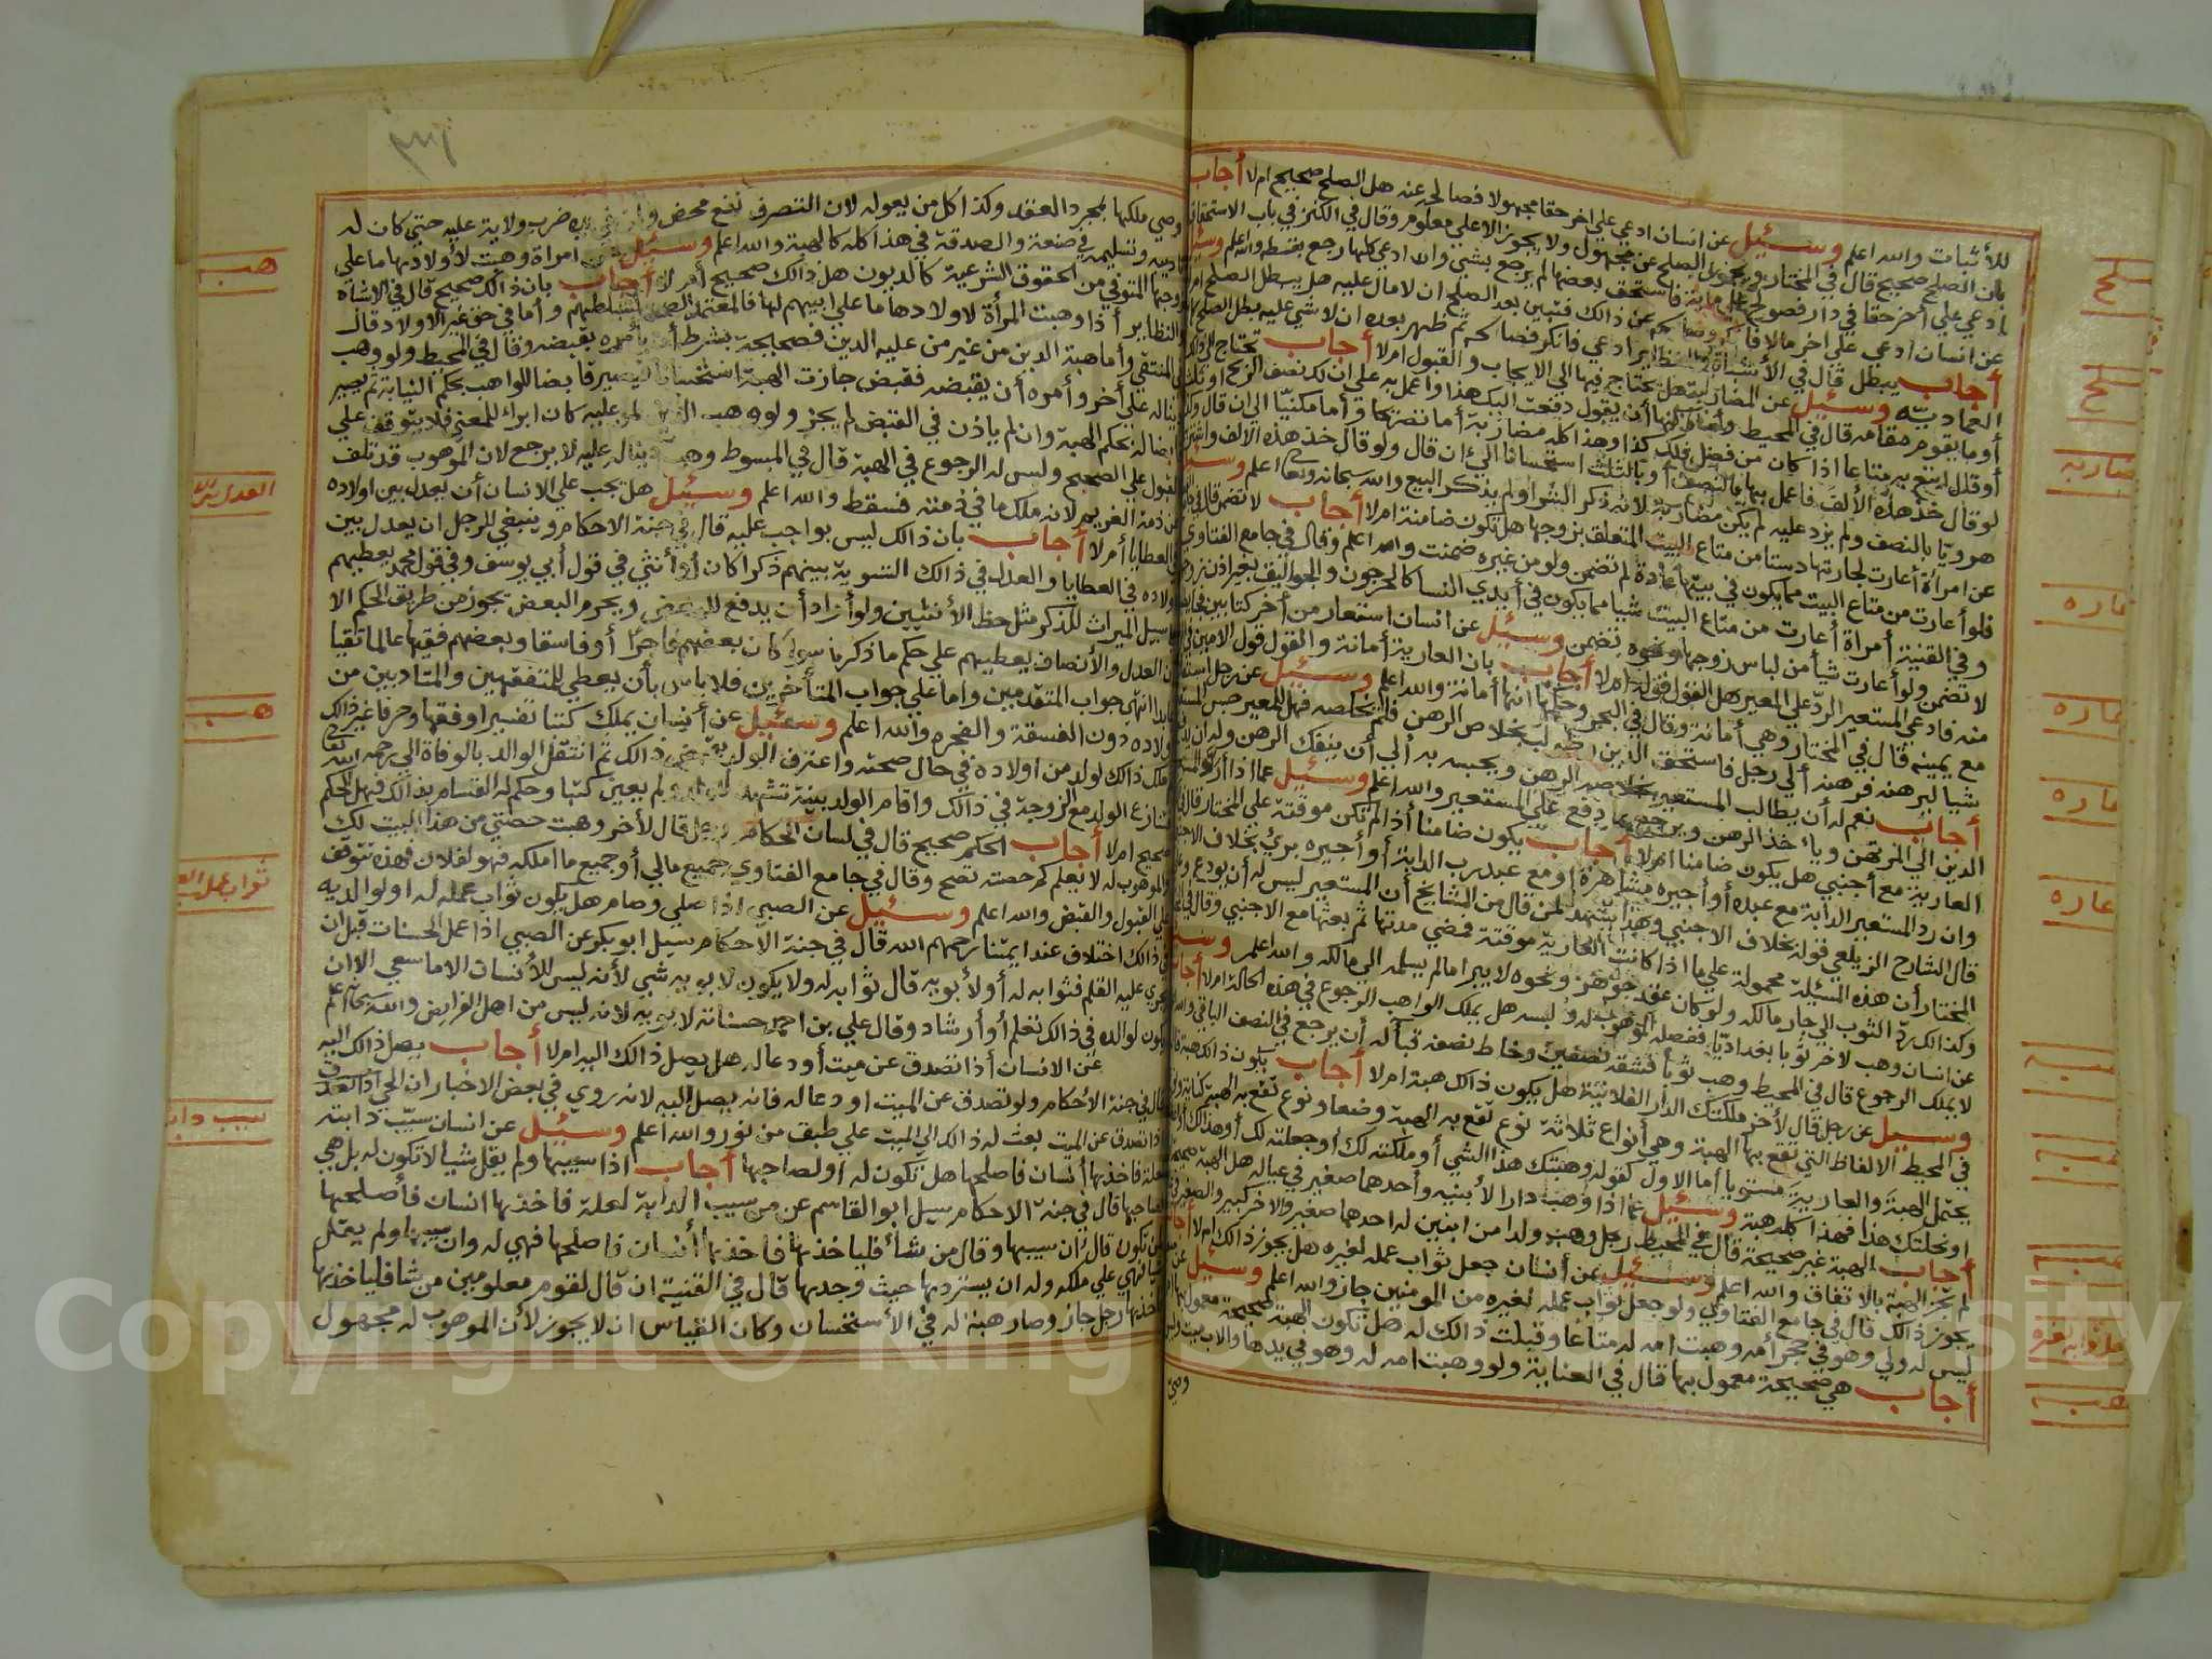 للأثبات والله اعلم وسئيل عن انسان ادعي علي اخر حقا مجهولا فصالحه عنه هل الصلح صحيح ام لا أجاب
بان الصلح صحيح قال في المختار ويجوز الصلح عن مجهول ولا يجوز الا علي معلوم وقال في الكنز في باب الاستحقاق
ادعي علي أخر حقا في دار فصولح علي مائة فاستحق بعضها لم يرجع بشي ولو ادعي كلها رجع بقسطه والله اعلم وسئيل
عن انسان ادعي علي اخر مالا فانكر وصالحه عن ذالك فتبين بعد الصلح ان لا مال عليه هل يبطل الصلح ام لا
أجاب يبطل قال في الأشباه والنظاير ادعي فانكر فصالحه ثم ظهر بعده ان لا شي عليه بطل الصلح
العمادييه وسئيل عن المضاربة هل تحتاج فيها الي الايجاب والقبول ام لا أجاب تحتاج الي ذالك
أو ما يقوم مقامه قال في المحيط وأما ركنها أن يقول دفعت اليك هذا واعمل به علي ان لك نصف الربح او ثلثه
أو قال ابتع به متاعا اذا كان من فضل فلك كذا وهذا كله مضاربة أما نصريحا وأما مكنيا الي ان قال وكذا
لو قال خذ هذه الألف فاعمل بها بالنصف أو بالثلث استحسانا الي ان قال ولو قال خذ هذه الالف واشتري
هرويا بالنصف ولم يزد عليه لم يكن مضاربة لانه ذكر الشرا ولم يذكر البيع والله سبحانه وتعالي اعلم وسئيل
عن امرأة أعارت لجارتها دستا من متاع البيت المتعلق بزوجها هل تكون ضامنة ام لا أجاب لا تضمن قال في
فلو أعارت من متاع البيت مما يكون في بيتها عادة لم تضمن ولو من غيره ضمنت والله اعلم وقال في جامع الفتاوي
وفي القنية أمراة أعارت من متاع البيت شيا مما يكون في أيدي النسا كالمرجون والجواليق بغير اذن زوجها
لا تضمن ولو أعارت شيأ من لباس زوجها ونحوه تضمن وسئيل عن انسان استعار من أخر كتابين
منه فادعي المستعير الرد علي المعير هل القول قوله ام لا أجاب بان العارية أمانة والقول قول الامين في
مع يمينه قال في المختار وهي أمانة وقال في البحر وحكمها انها أمانة والله اعلم وسئيل عن رجل استعار
شيا ليرهنه فرهنه ألي رجل فاستحق الدين طلب بخلاص الرهن فلم يخلصه فهل للمعير حبس المستعير
أجاب نعم له أن يطالب المستعير بخلاص الرهن ويحبسه به ألي أن ينفك الرهن وله ان
الدين الي المرتهن وياخذ الرهن ويرجع بما دفع علي المستعير والله اعلم وسئيل عما اذا رد المستعير
العارية مع أجنبي هل يكون ضامنا ام لا أجاب يكون ضامنا أذا لم تكن موقتة علي المختار قال
وان رد المستعير الدابة مع عبده أو أجيره مشاهرة أو مع عبد رب الدابة أو أجيره بري بخلاف الاجنبي
قال الشارح الزيلعي قوله بخلاف الاجنبي وهذا يشهد لمن قال من المشايخ أن المستعير ليس له أن يودع
المختار أن هذه المسئيلة محمولة علي ما اذا كانت العارية موقتة فمضي مدتها ثم بعثها مع الاجنبي وقال
وكذالك رد الثوب الي جار مالكه ولو كان عقد جوهر ونحوه لا يبرا ما لم يسلمه الي مالكه والله اعلم وسئيل
عن انسان وهب لاخر ثوبا بغداديا ففصله الموهوب له ولبسه هل يملك الواهب الرجوع في هذه الحالة ام لا أجاب
لا يملك الرجوع قال في المحيط وهب ثوبا فشقه نصفين وخاط نصفه قبأ له أن يرجع في النصف الباقي والله
وسئيل عن رجل قال لأخر ملكتك الدار الفلانية هل يكون ذالك هبة ام لا أجاب يكون ذالك هبة
في المحيط الالفاظ التي تقع بها الهبة وهي أنواع ثلاثة نوع تقع به الهبة وضعا ونوع تقع به الهبة كناية
يحتمل الهبة والعارية مستويا أما الاول كقوله وهبتك هذا الشي أو ملكته لك أو جعلته لك أو هذا لك
او نحلتك هذا فهذا كله هبة وسئيل عما اذا وهب دارا لأبنيه وأحدهما صغير في عياله هل الهبة صحيحة
أجاب الهبة غير صحيحة قال في المحيط رجل وهب ولدا من ابنين له احدهما صغير والاخر كبير والصغير في
لم تجز الهبة بالاتفاق والله اعلم وسئيل عن أنسان جعل ثواب عمله لغيره هل يجوز ذالك ام لا أجاب
يجوز ذالك قال في جامع الفتاوي ولو جعل ثواب عمله لغيره من المومنين جاز والله اعلم وسئيل عن
ليس له ولي وهو في حجر أمه وهبت امه له متاعا وقبلت ذالك له هل تكون الهبة صحيحة معمول بها
أجاب هي صحيحة معمول بها قال في العناية ولو وهبت امه له وهو في يدها والاب ميت
وصي
صلح
صلح
مضاربه
عاره
عاره
عاره
عاره
هبه
هبه
هبه
هبه
وصي ملكها بمجرد العقد وكذا كل من يعوله لان التصرف نفع محض ضرب ولاية عليه حتي كان له
تاديبه وتسليمه في صنعة والصدقة في هذا كله كالهبة والله اعلم وسئيل عن امراة وهبت لأولادها ما علي
زوجها المتوفي من الحقوق الشرعية كالديون هل ذالك صحيح أم لا أجاب بان ذالك صحيح قال في الاشباه
والنظاير أذا وهبت المرأة لاولادها ما علي ابيهم لها فالمعتمد الصحة وأما في حق غير الاولاد قال
في المنتقي وأما هبة الدين من غير من عليه الدين فصحيحة بشرط أن يأمره بقبضه وقال في المحيط ولو وهب
دينا له علي أخر وأمره أن يقبضه فقبض جازت الهبة استحسانا فيصير قابضا للواهب بحكم النيابة ثم يصير
قابضا له بحكم الهبة وان لم ياذن في القبض لم يجز ولو وهب الدين لمن عليه كان ابراء للمعني فلا يتوقف علي
القبول علي الصحيح وليس له الرجوع في الهبة قال في المبسوط وهب دينا له عليه لا يرجع لان الموهوب قد تلف
من ذمة الغريم لانه ملك ما في ذمته فسقط والله اعلم وسئيل هل يجب علي الانسان أن يعدل بين اولاده
في العطايا أم لا أجاب بان ذالك ليس بواجب عليه قال في جنة الاحكام وينبغي للرجل ان يعدل بين
اولاده في العطايا والعدل في ذالك التسوية بينهم ذكرا كان أو أنثي في قول أبي يوسف وفي قول محمد يعطيهم
سبيل الميراث للذكر مثل حظ الأنثيين ولو أراد أن يدفع للبعض ويحرم البعض يجوز من طريق الحكم الا
ان العدل والأنصاف يعطيهم علي حكم ما ذكرنا سواء كان بعضهم فاجرا أو فاسقا وبعضهم فقيها عالما تقيا
انتهي جواب المتقدمين واما علي جواب المتأخرين فلا باس بأن يعطي للمتفقهين والمتادبين من
اولاده دون الفسقة والفجره والله اعلم وسئيل عن أنسان يملك كتبا تفسير او فقها وحرفا غير ذالك
ملك ذالك لولد من اولاده في حال صحته واعترف الولد بقبض ذالك ثم انتقل الوالد بالوفاة الي رحمه الله تعالي
تنازع الولد مع الزوجة في ذالك واقام الولد بينة تشهد له ولم يعين كتبا وحكم له القسام بذالك فهل الحكم
صحيح ام لا أجاب الحكم صحيح قال في لسان الحكام رجل قال لأخر وهبت حصتي من هذا البيت لك
والموهوب له لا يعلم كم حصته تصح وقال في جامع الفتاوي جميع مالي أو جميع ما املكه فهو لفلان فهذه تتوقف
علي القبول والقبض والله اعلم وسئيل عن الصبي اذا صلي وصام هل يكون ثواب عمله له او لوالديه
في ذالك اختلاف عند ايمتنا رحمهم الله قال في جنة الأحكام سيل ابو بكر عن الصبي اذا عمل الحسنات قبل ان
يجري عليه القلم فثوابه له أو لأبويه قال ثوابه له ولا يكون لابويه شي لأنه ليس للأنسان الا ما سعي الا ان
يكون لوالده في ذالك تعلم أو أرشاد وقال علي بن احمد حسناته لابويه لانه ليس من اهل الفرايض والله سبحانه اعلم
عن الانسان أذا تصدق عن ميت أو دعا له هل يصل ذالك اليه ام لا أجاب يصل ذالك اليه
قال في جنة الأحكام ولو تصدق عن الميت او دعا له فانه يصل اليه لانه روي في بعض الاخبار ان الحي اذا
اذا تصدق عن الميت بعث له ذالك الي الميت علي طبق من نور والله اعلم وسئيل عن انسان سيب دابته
لعلة فاخذها أنسان فاصلحها هل تكون له او لصاحبها أجاب اذا سيبها ولم يقل شيا لا تكون له بل هي
لصاحبها قال في جنة الاحكام سيل ابو القاسم عن من سيب الدابة لعلة فاخذها انسان فأصلحها
لمن تكون قال ان سيبها وقال من شأ فلياخذها فاخذها أنسان فاصلحها فهي له وان سيبها ولم يقل
شيا فهي علي ملكه وله ان يستردها حيث وجدها قال في القنية ان قال لقوم معلومين من شا فلياخذها
فاخذها رجل جاز وصار هبة له في الأستحسان وكان القياس ان لا يجوز لأن الموهوب له مجهول
هبه
هبه
ثواب عمل
سيب دابته
Copyright © King Saud University